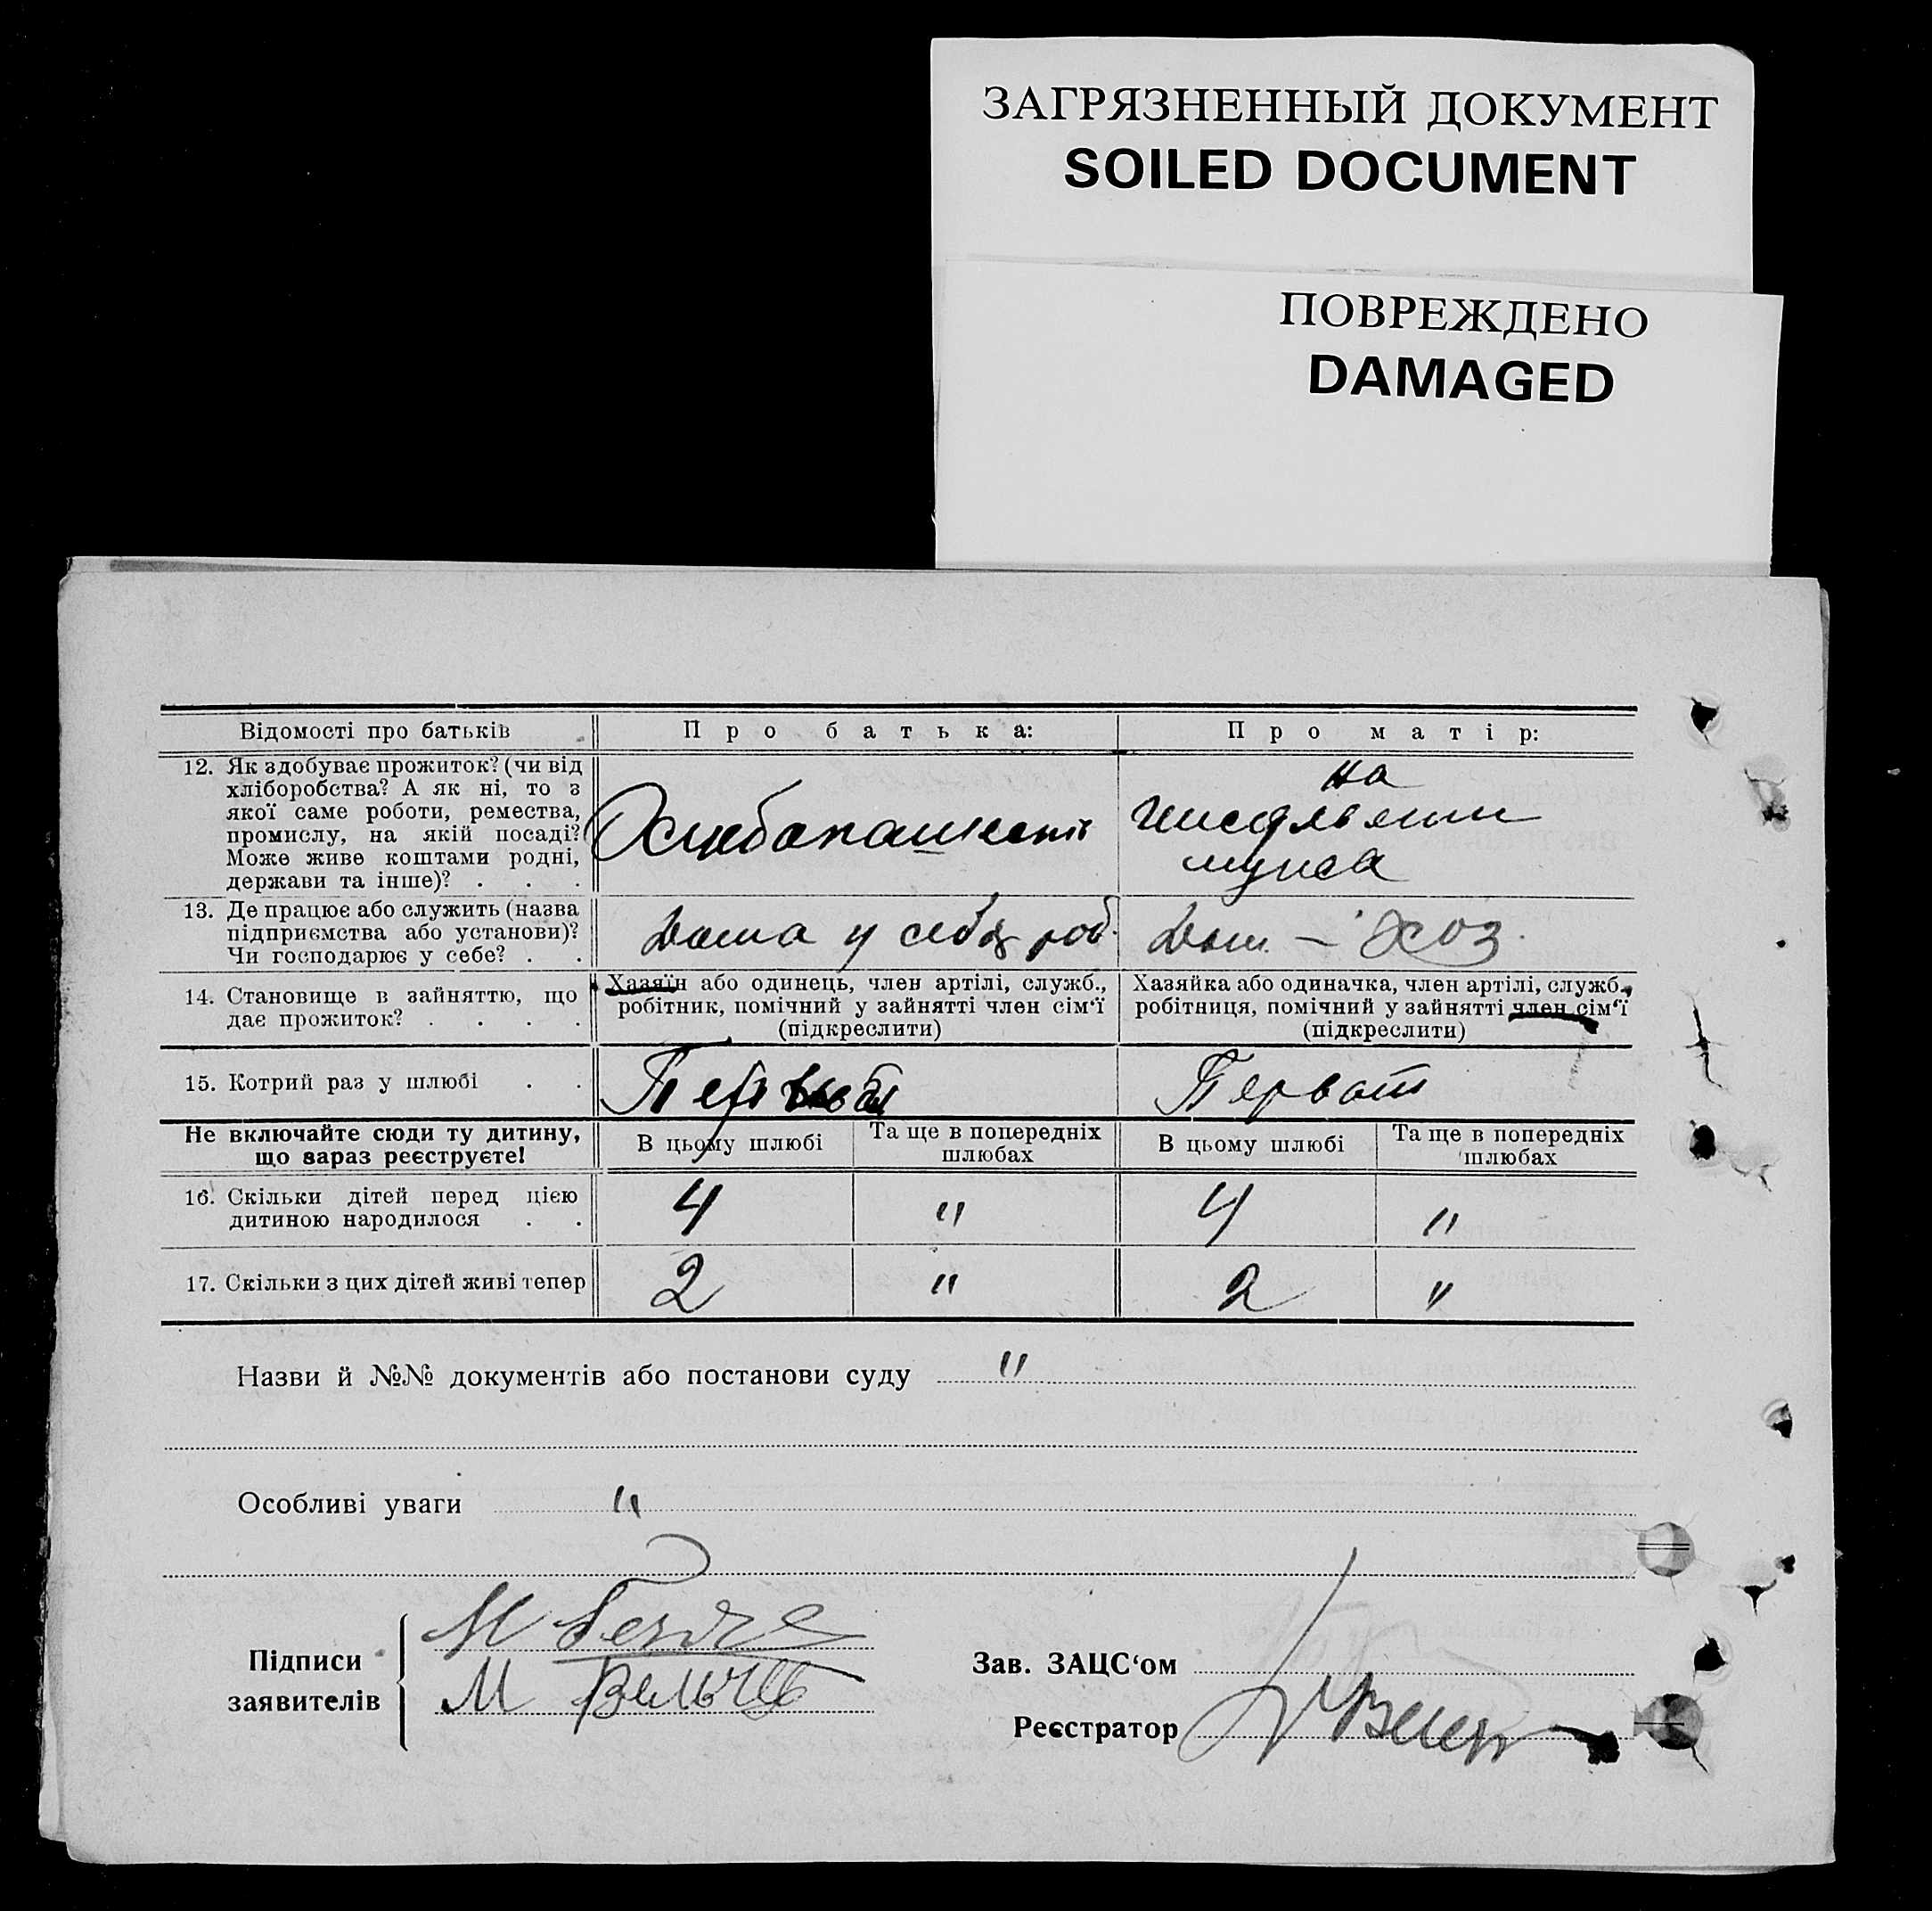 ЗАГРЯЗНЕННЫЙ ДОКУМЕНТ
SOILED DOCUMENT
ПОВРЕЖДЕНО
DAMAGED
Відомості про батьків
Про батька:
Про матір:
12. Як здобуває прожиток? (чи від
хліборобства? А як ні, то з
якої саме роботи, ремества,
промислу, на якій посаді?
Може живе коштами родні,
держави та інше)? . . .
на
мужа
13. Де працює або служить (назва
підприємства або установи)?
Чи господарює у себе? . .
Дома у себя роб.
Дом. – Хоз.
14. Становище в зайняттю, що
дає прожиток? . . . .
Хазяїн або одинець, член артілі, служб.,
робітник, помічний у зайнятті член сім‘ї
(підкреслити)
Хазяйка або одиначка, член артілі, служб.,
робітниця, помічний у зайнятті член сім‘ї
(підкреслити)
15. Котрий раз у шлюбі . .
Первый
Первой
Не включайте сюди ту дитину,
що зараз реєструєте!
В цьому шлюбі
Та ще в попередніх
шлюбах
В цьому шлюбі
Та ще в попередніх
шлюбах
16. Скільки дітей перед цією
дитиною народилося . .
4
"
4
"
17. Скільки з цих дітей живі тепер
2
"
2
"
Назви й №№ документів або постанови суду "
Особливі уваги "
Підписи
заявителів
М
М
Зав. ЗАЦС‘ом
Реєстратор